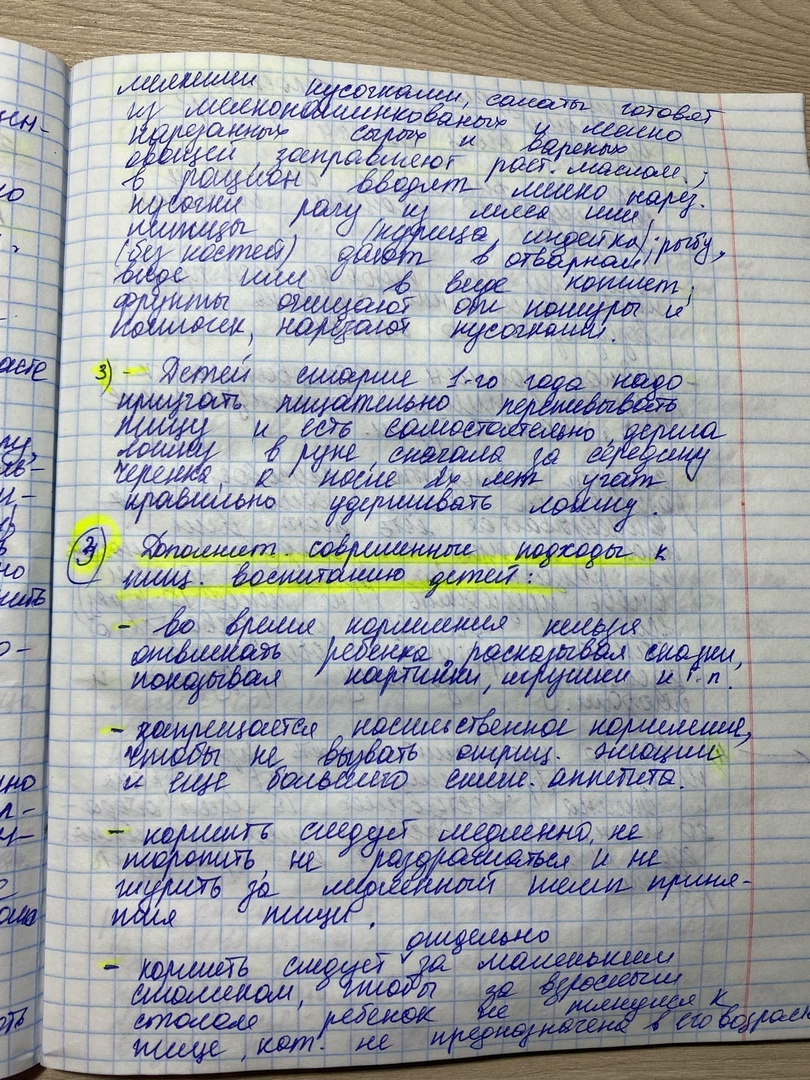 мелкими кусочками, салаты готовят
из мелконашинкованых и мелко
нарезанных сырых и вареных
овощей, заправляют раст. маслом;
в рацион вводят мелко нарез.
кусочки рагу из мяса или
птицы (курица, индейка); рыбу,
(без костей) дают в отварном
виде или в виде котлет;
фрукты очищают от кожуры и
косточек, нарезают кусочками.
3) - Детей старше 1-го года надо
приучать тщательно пережевывать
пищу и есть самостоятельно, держа
ложку в руке, сначала за середину
черенка, а после 2х лет учат
правильно удерживать ложку.
Дополнит. современные подходы к
пищ. воспитанию детей:
- во время кормления нельзя
отвлекать ребенка, расказывая сказки,
показывая картинки, игрушки и т.п.
- запрещается насильственное кормление,
чтобы не вызвать отриц. эмоции
и еще большего сниж. аппетита.
- кормить следует медленно, не
торопить, не раздражаться и не
журить за медленный темп приня-
тия пищи.
отдельно
- кормить следует за маленьким
столиком, чтобы за взрослым
столом ребенок не тянулся к
пище, кот. не предназначена в его возрасте
цен-
но
асте
но
о-
но